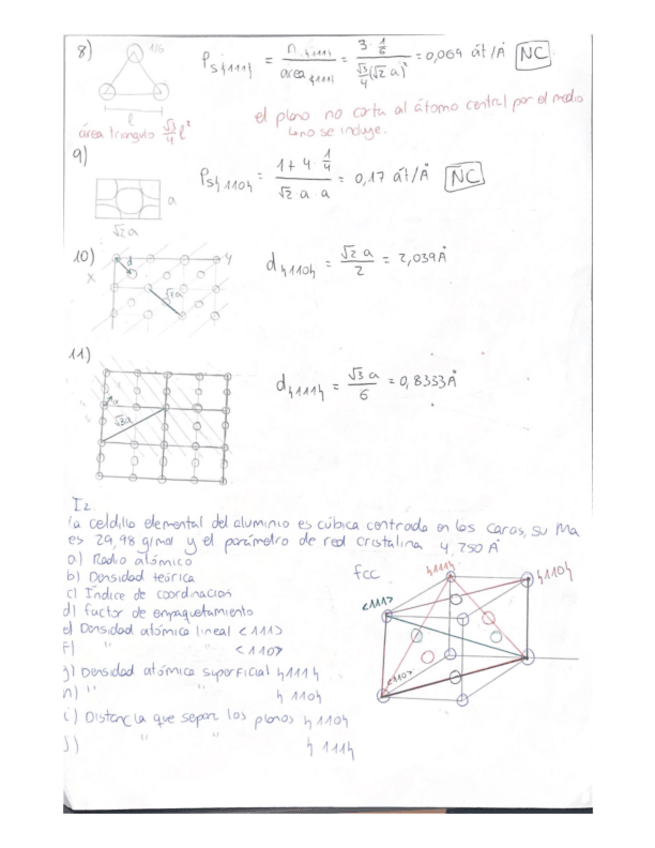 8) 1/6
l
área triángulo √3/4 l²
Ps{111} = n{111}/area{111} = 3·1/6 / √3/4 (√2 a)² = 0,064 át/Å NC
el plano no corta al átomo central por el medio
no se incluye.
9)
a
√2 a
Ps{110} = 1+4·1/4 / √2 a·a = 0,17 át/Å NC
10) d y
x
√2a
d{110} = √2 a / 2 = 2,039Å
11)
√3a
d{111} = √3 a / 6 = 0,8333Å
I2.
la celdilla elemental del aluminio es cúbica centrada en las caras, su Ma
es 29,98 g/mol y el parámetro de red cristalina 4,250 Å
a) Radio atómico
b) Densidad teórica
c) Índice de coordinacion
d) factor de empaquetamiento
e) Densidad atómica lineal <111>
F) " <110>
g) Densidad atómica superficial {111}
h) " " {110}
i) Distancia que separa los planos {110}
j) " " {111}
fcc {111} {110}
<111>
<110>